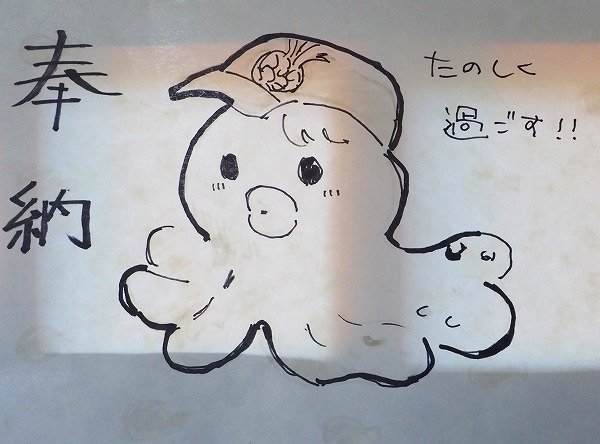 奉納
たのしく
過ごす!!